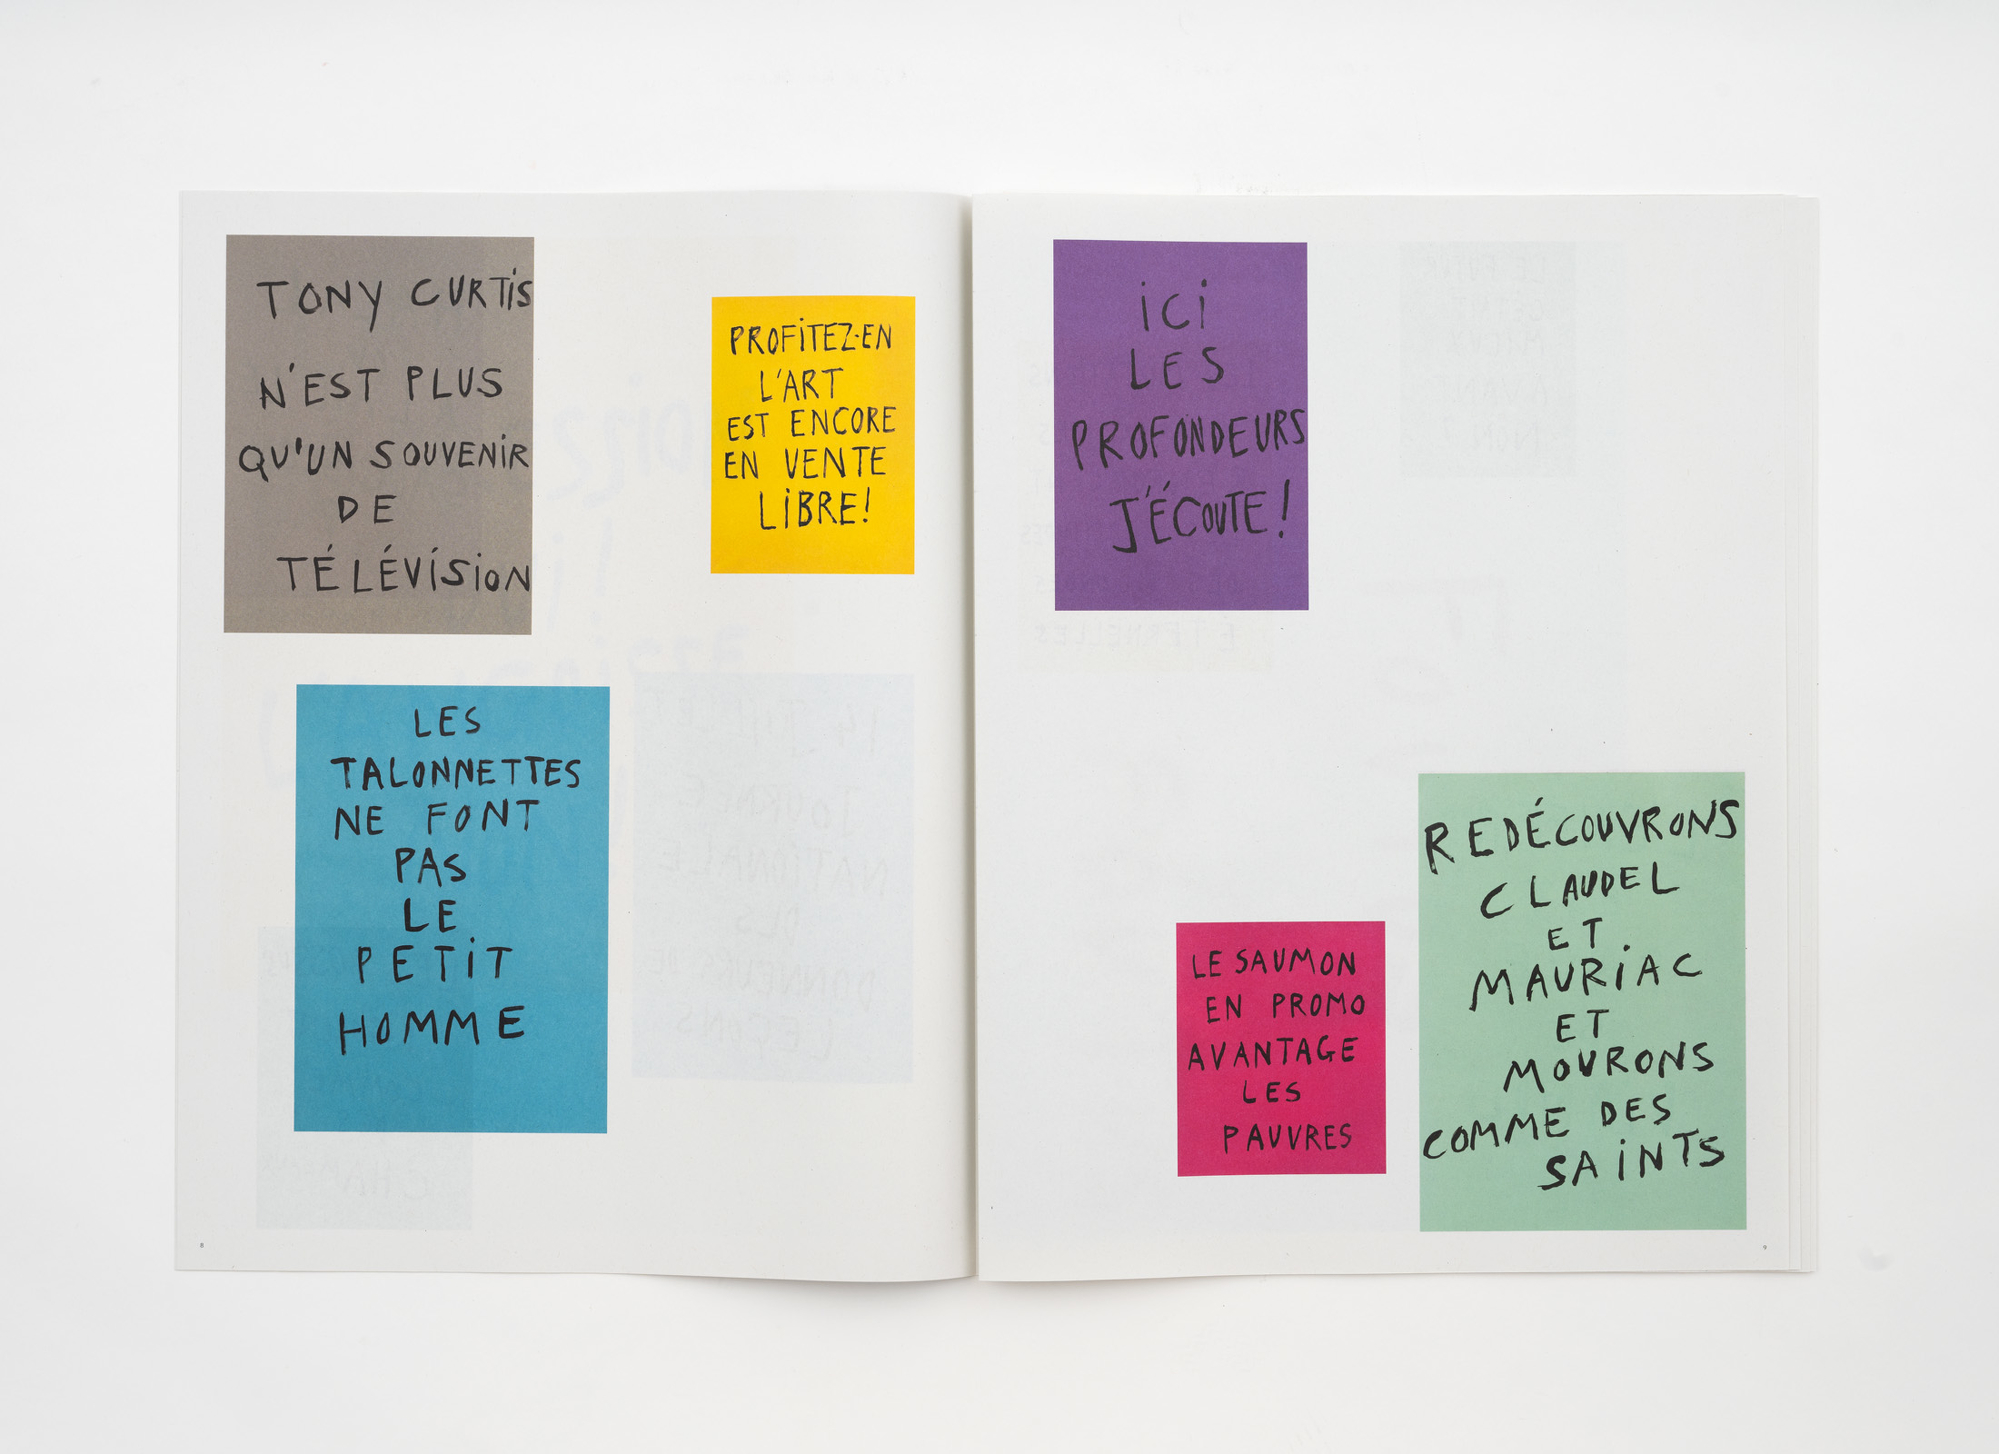 TONY CURTiS
N'EST PLUS
QU'UN SOUVENiR
DE
TÉLÉViSiON
PROFiTEZ-EN
L'ART
EST ENCORE
EN VENTE
LiBRE!
LES
TALONNETTES
NE FONT
PAS
LE
PETiT
HOMME
8
iCi
LES
PROFONDEURS
J'ÉCOUTE!
LE SAUMON
EN PROMO
AVANTAGE
LES
PAUVRES
REDÉCOUVRONS
CLAUDEL
ET
MAURiAC
ET
MOURONS
COMME DES
SAiNTS
9